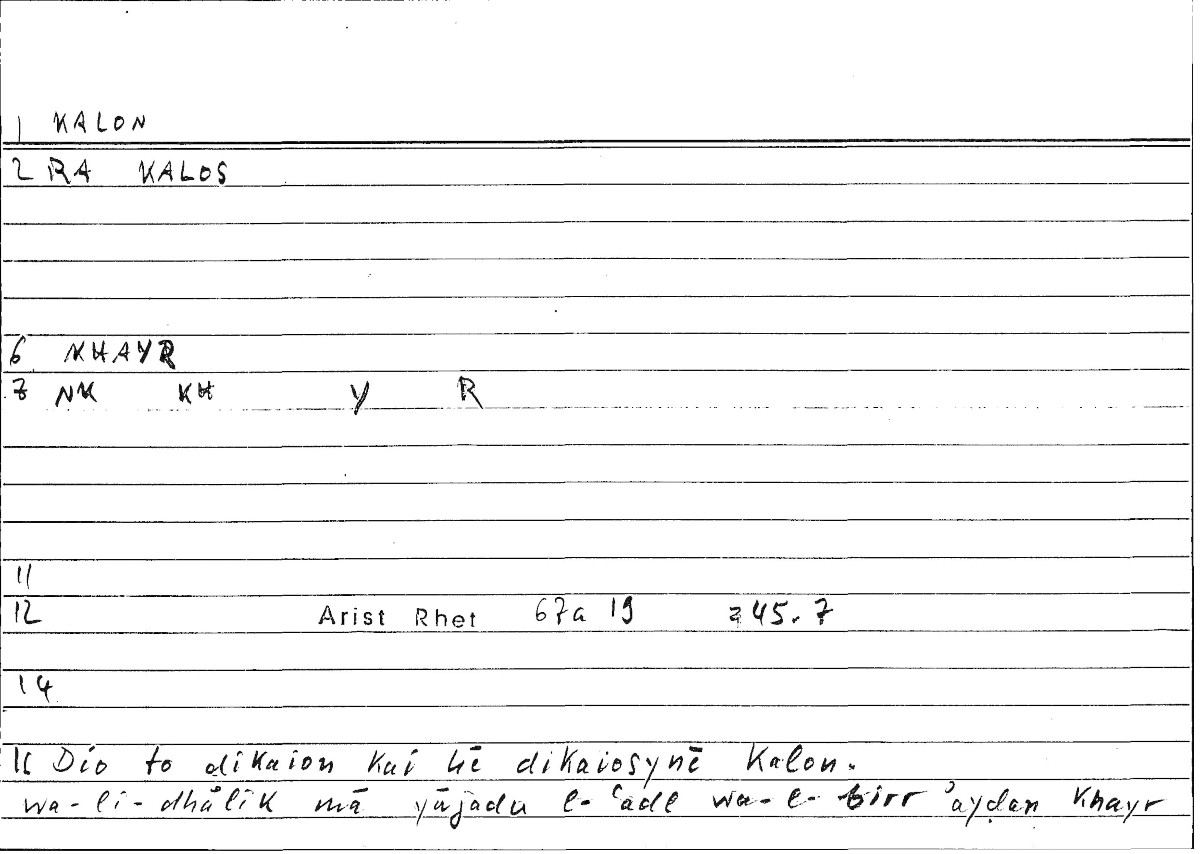 1 KALON
2 RA KALOS
6 KHAYR
7 NK KH Y R
11
12 Arist Rhet 67a 19 =45.7
14
16 Dio to dikaion kai hē dikaiosynē kalon.
wa-li-dhālik mā yājadu l-ʿadl wa-l-birr ʾayḍan khayr